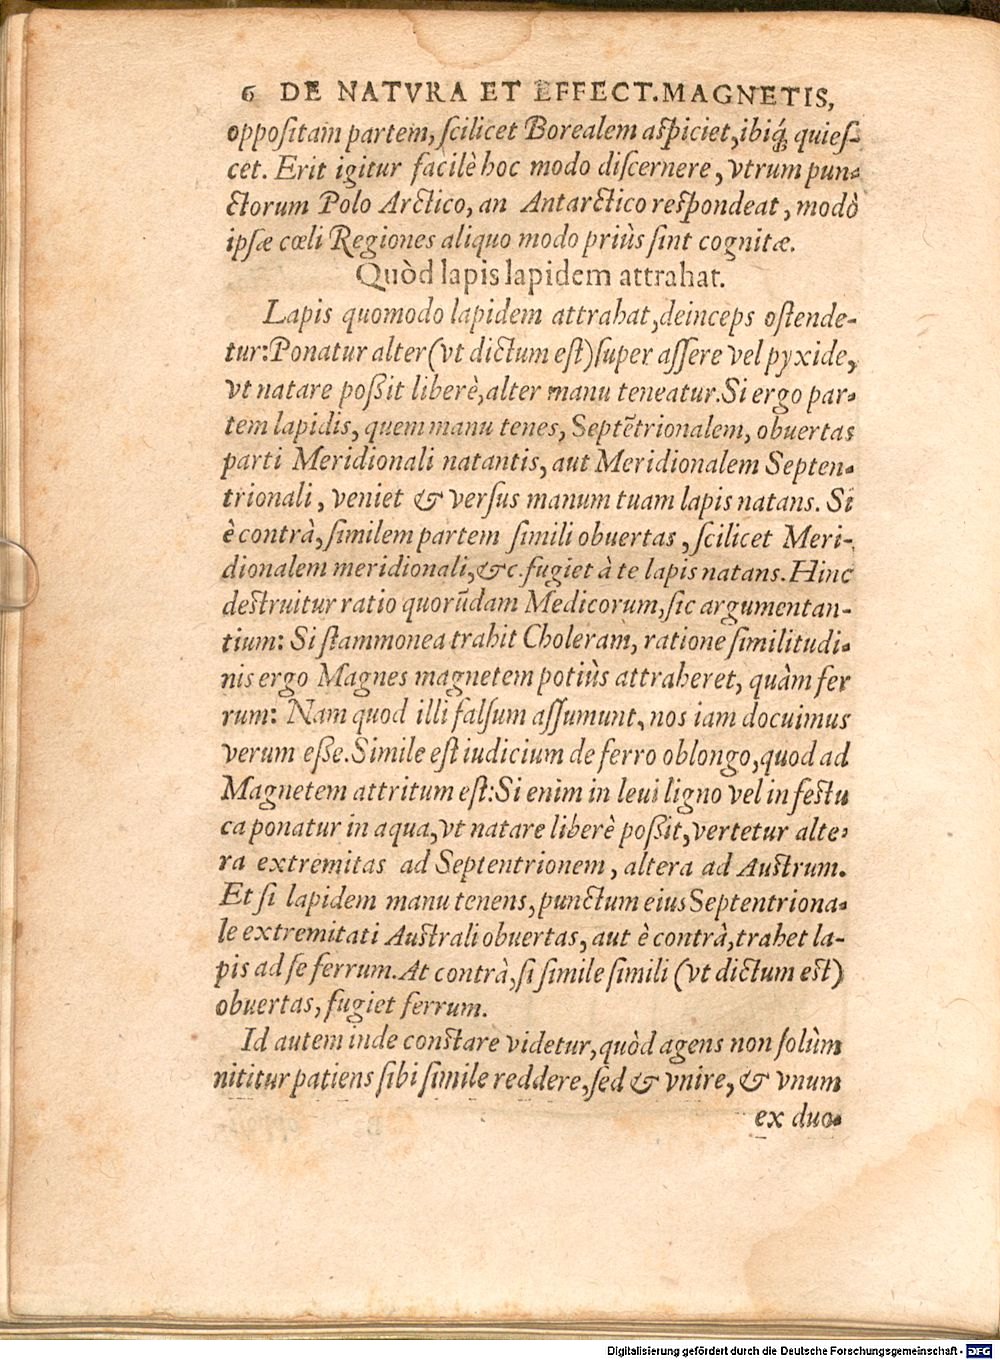 6 DE NATVRA ET EFFECT.MAGNETIS,
oppoſitam partem, ſcilicet Borealem aſpiciet, ibiq́; quieſ-
cet. Erit igitur facilè hoc modo diſcernere, vtrum pun-
ctorum Polo Arctico, an Antarctico reſpondeat, modò
ipſæ cœli Regiones aliquo modo priùs ſint cognitæ.
Quòd lapis lapidem attrahat.
Lapis quomodo lapidem attrahat, deinceps oſtende-
tur: Ponatur alter (vt dictum eſt) ſuper aſſere vel pyxide,
vt natare poßit liberè, alter manu teneatur. Si ergo par-
tem lapidis, quem manu tenes, Septẽtrionalem, obuertas
parti Meridionali natantis, aut Meridionalem Septen-
trionali, veniet & verſus manum tuam lapis natans. Si
è contrà, ſimilem partem ſimili obuertas, ſcilicet Meri-
dionalem meridionali, &c. fugiet à te lapis natans. Hinc
deſtruitur ratio quorũdam Medicorum, ſic argumentan-
tium: Si ſtammonea trahit Choleram, ratione ſimilitudi-
nis ergo Magnes magnetem potiùs attraheret, quàm fer
rum: Nam quod illi falſum aſſumunt, nos iam docuimus
verum eße. Simile eſt iudicium de ferro oblongo, quod ad
Magnetem attritum eſt: Si enim in leui ligno vel in feſtu
ca ponatur in aqua, vt natare liberè poßit, vertetur alte-
ra extremitas ad Septentrionem, altera ad Auſtrum.
Et ſi lapidem manu tenens, punctum eius Septentriona-
le extremitati Auſtrali obuertas, aut è contrà, trahet la-
pis ad ſe ferrum. At contrà, ſi ſimile ſimili (vt dictum eſt)
obuertas, fugiet ferrum.
Id autem inde conſtare videtur, quòd agens non ſolùm
nititur patiens ſibi ſimile reddere, ſed & vnire, & vnum
ex duo-
Digitalisierung gefördert durch die Deutsche Forschungsgemeinschaft - DFG